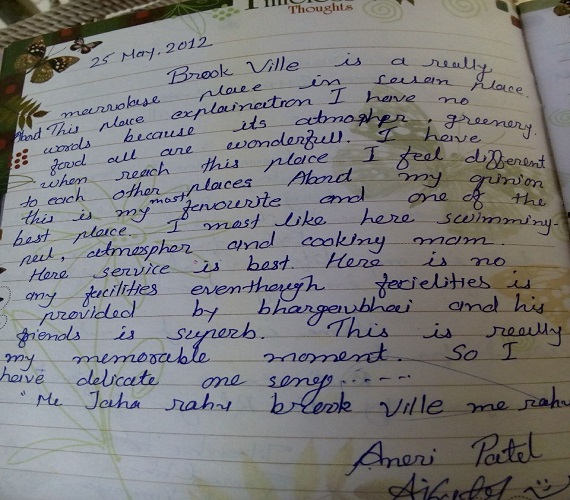 Thoughts
25 May, 2012
Brook Ville is a really
marvolase place in sasan place.
Abord This place explaination I have no
words because its atmospher, greenery,
food all are wonderfull. I have
when reach this place I feel different
to each other places Abord my opinion
this is my most favourite and one of the
best place. I most like here swimming-
pul, atmospher and cooking mam.
Here service is best. Here is no
any facilities eventhough facielities is
provided by bhargavbhai and his
friends is superb. This is really
my memorable moment. So I
have delicate one song......
"Me Jaha rahu brook ville me rahu
Aneri Patel